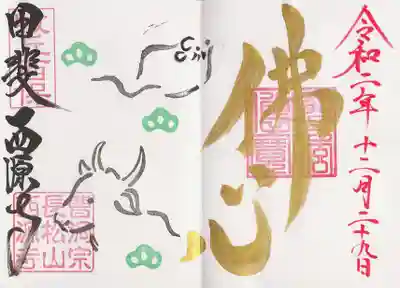 令和二年十二月二十九日
佛心
甲斐西源寺
曹洞宗
長松山
西源寺